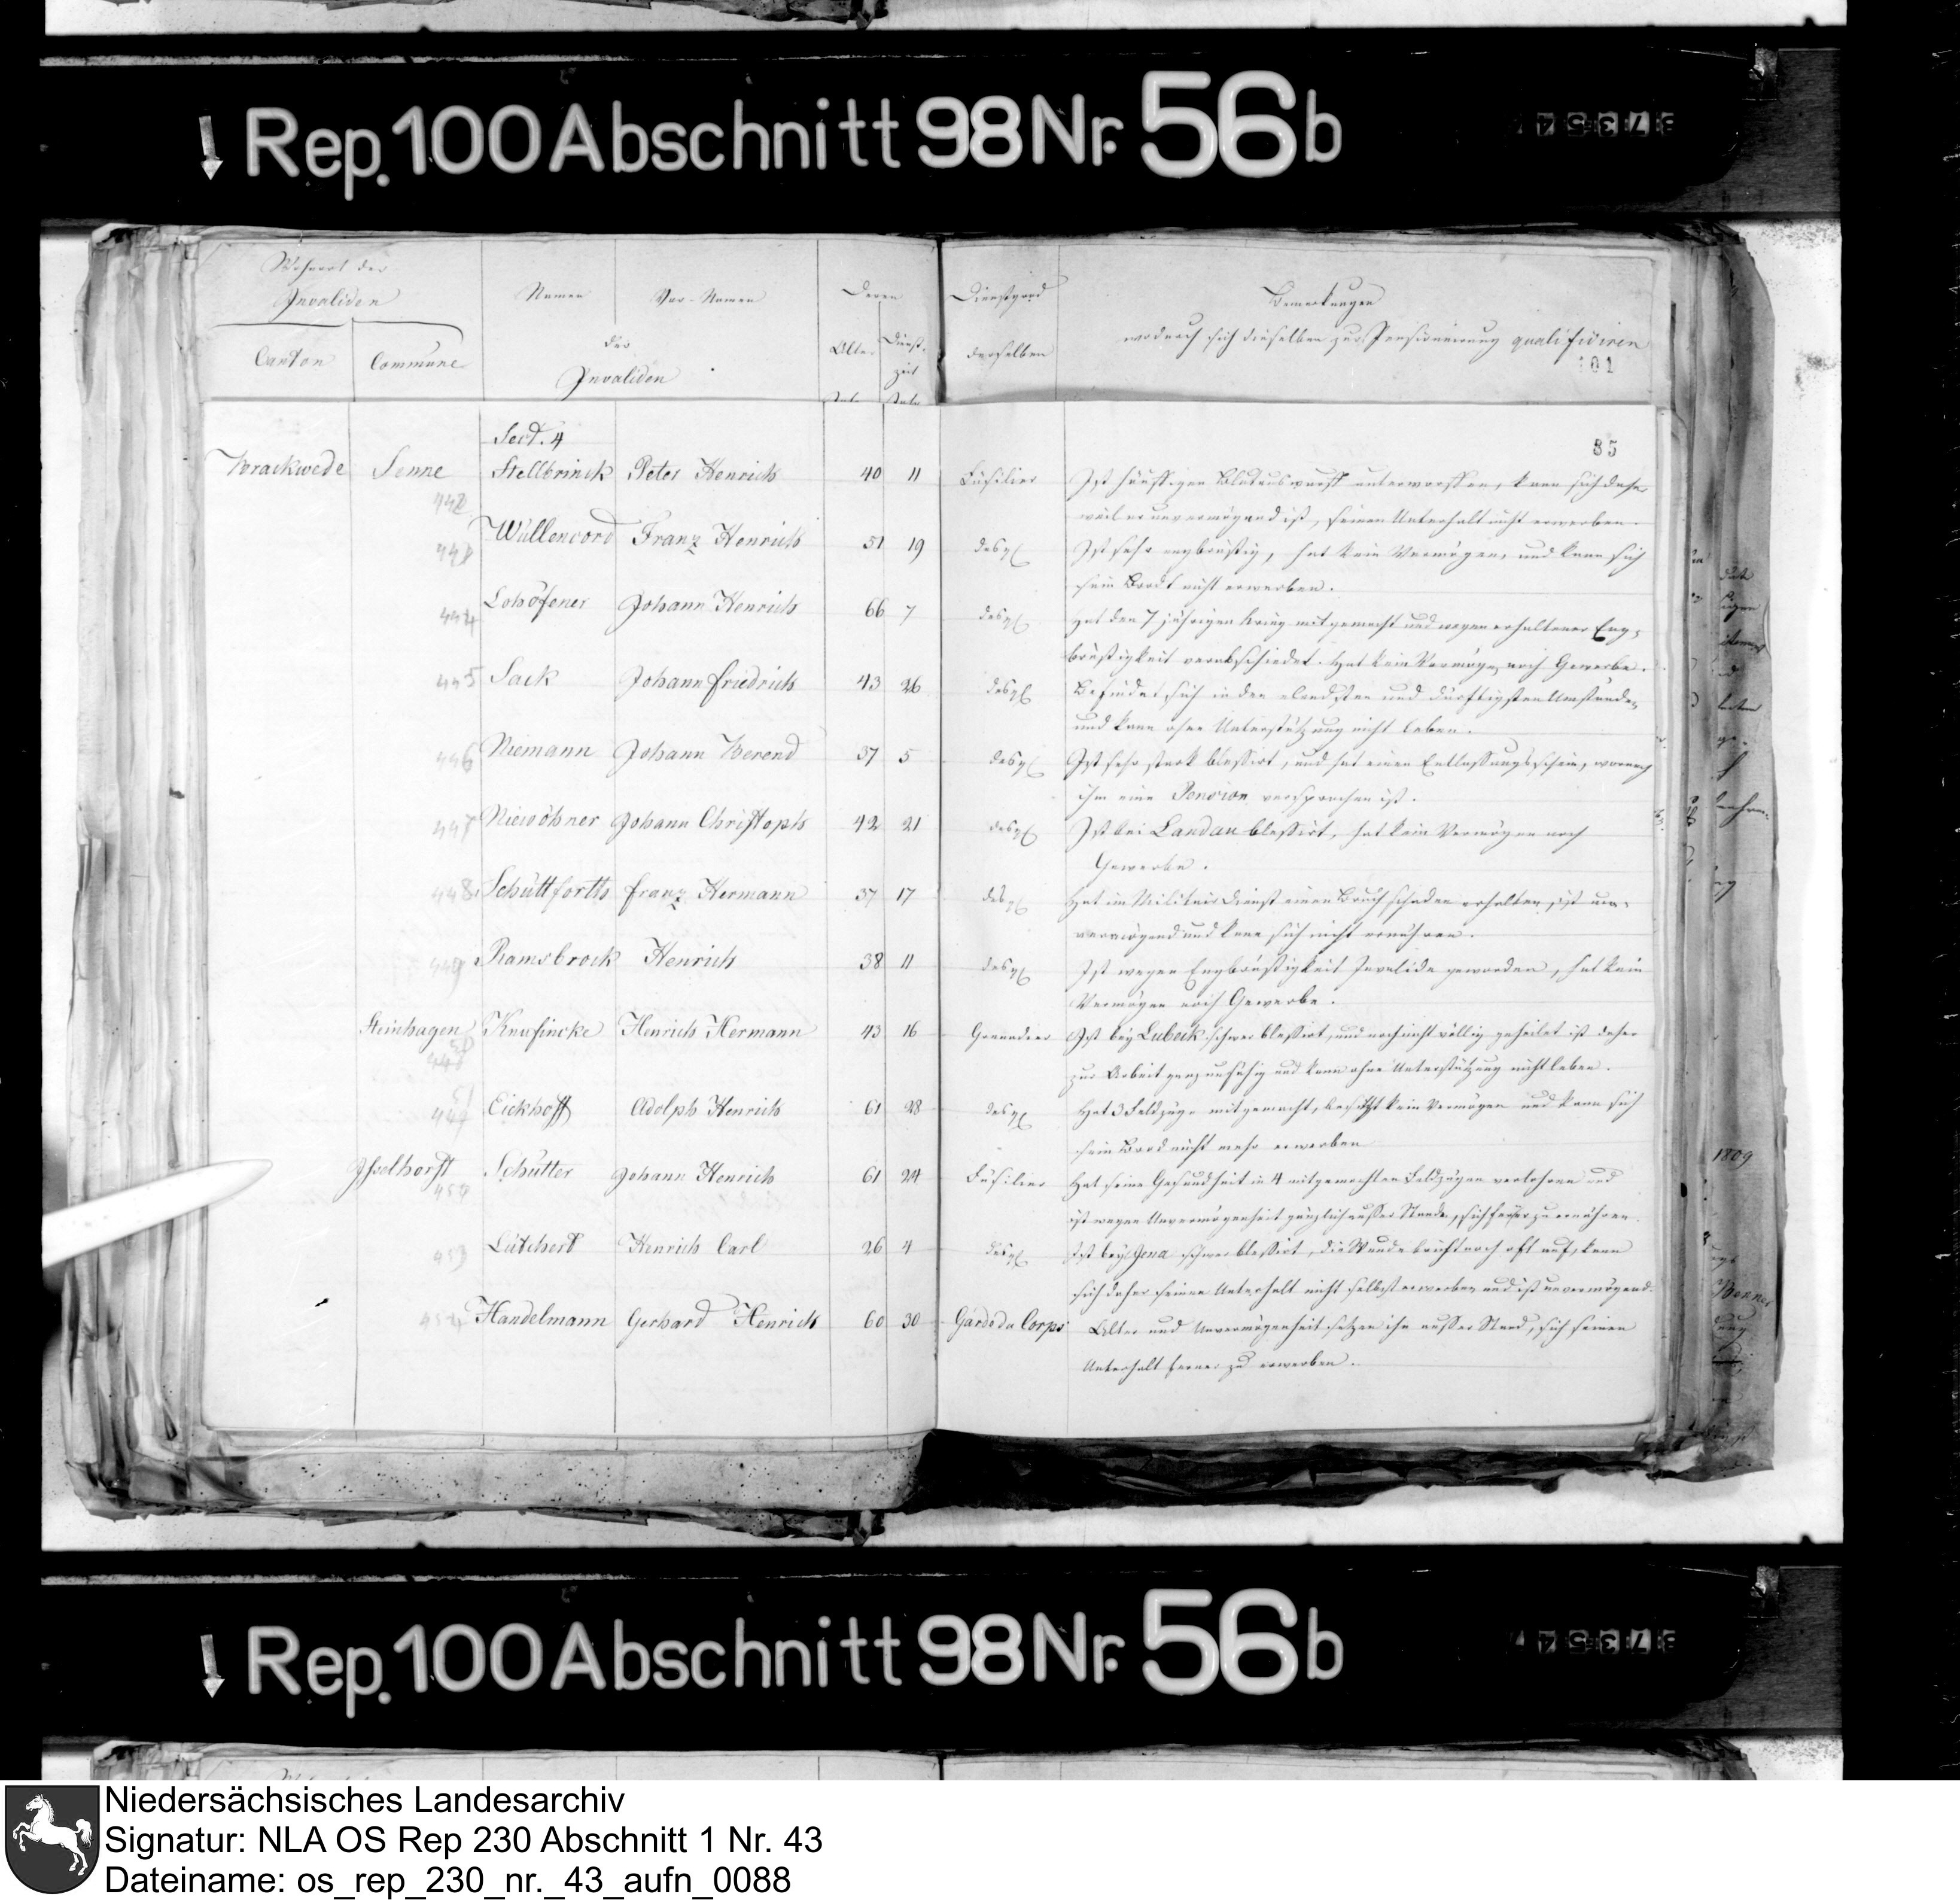 Rep. 100 Abschnitt 98 Nr. 56 b
Wohnort der
Invaliden
Canton Commune
Namen Vor-Namen
der
Invaliden
Deren
Alter Dienst-
zeit
Dienstgrad
derselben
Bemerkungen
wodurch sich dieselben zur Pensionierung qualificiren
101
85
Sect. 4
Brackwede Senne Stellbrinck Peter Henrich 40 11 Fusilier Ist häuffigen Blutauswurff unterworffen, kann sich daher
weil er unvermögend ist, seinen Unterhalt nicht erwerben.
Wullencord Franz Henrich 51 19 desgl Ist sehr engbrüstig, hat kein Vermögen, und kann sich
sein Brodt nicht erwerben.
Lohöfener Johann Henrich 66 7 desgl Hat den 7 jährigen Krieg mitgemacht und wegen erhaltener Eng-
brüstigkeit verabschiedet. Hat kein Vermögen noch Gewerbe.
445 Sack Johann Friedrich 43 26 desgl Befindet sich in den elendsten und dürftigsten Umständen
und kann ohne Unterstützung nicht leben.
446 Niemann Johann Berend 37 5 desgl Ist sehr stark blessirt, und hat einen Entlassungsschein, wornach
ihm eine Pension versprochen ist.
447 Niewöhner Johann Christoph 42 21 desgl Ist bei Landau blessirt, hat kein Vermögen noch
Gewerbe.
448 Schüttforth Franz Hermann 37 17 desgl Hat im Militair Dienst einen Bruchschaden erhalten, ist un-
vermögend und kann sich nicht ernähren.
449 Ramsbrock Henrich 38 11 desgl Ist wegen Engbrüstigkeit Invalide geworden, hat kein
Vermögen noch Gewerbe.
Steinhagen Knufincke Henrich Hermann 43 16 Grenadier Ist bey Lubeck schwer blessirt, und noch nicht völlig geheilet ist daher
zur Arbeit ganz unfähig und kann ohne Unterstützung nicht leben.
Eickhoff Adolph Henrich 61 28 desgl Hat 3 Feldzüge mitgemacht, besitzt kein Vermögen und kann sich
sein Brod nicht mehr erwerben
Isselhorst Schütter Johann Henrich 61 24 Fusilier Hat seine Gesundheit in 4 mitgemachten Feldzügen verlohren und
ist wegen Unvermögenheit gänzlich ausser Stande, sich ferner zu ernähren.
453 Lütchert Henrich Carl 26 4 desgl Ist bey Jena schwer blessirt, die Wunde bricht noch oft auf, kann
sich daher seinen Unterhalt nicht selbst erwerben und ist unvermögend.
454 Handelmann Gerhard Henrich 60 30 Garde du Corps Alter und Unvermögenheit setzen ihn ausser Stand, sich seinen
Unterhalt ferner zu erwerben.
1809
Rep. 100 Abschnitt 98 Nr. 56 b
Niedersächsisches Landesarchiv
Signatur: NLA OS Rep 230 Abschnitt 1 Nr. 43
Dateiname: os_rep_230_nr._43_aufn_0088